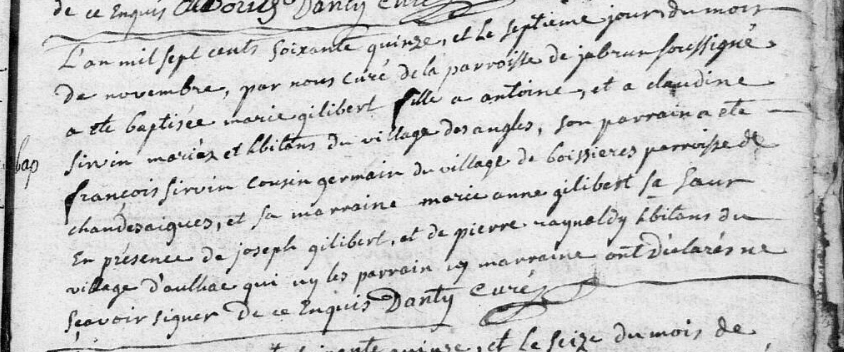 de ce Enquis Danty Curé
L'an mil sept cents soixante quinze, et le septieme jour du mois
de novembre, par nous curé de la parroisse de jabrun soussigné
a ete baptisée marie gilibert fille a antoine, et a claudine
sirvin mariéz et hbitans du village des angles, son parrain a ete
bap
françois sirvin cousin germain du village de boissieres parroisse de
chaudesaigues, et sa marraine marie anne gilibert sa saur
En présence de joseph gilibert, et de pierre raynaldy hbitans du
village d'aulhac qui ny les parrain ny marraine ont déclarés ne
sçavoir signer de ce Enquis Danty Curé
quinze, et le seize du mois de